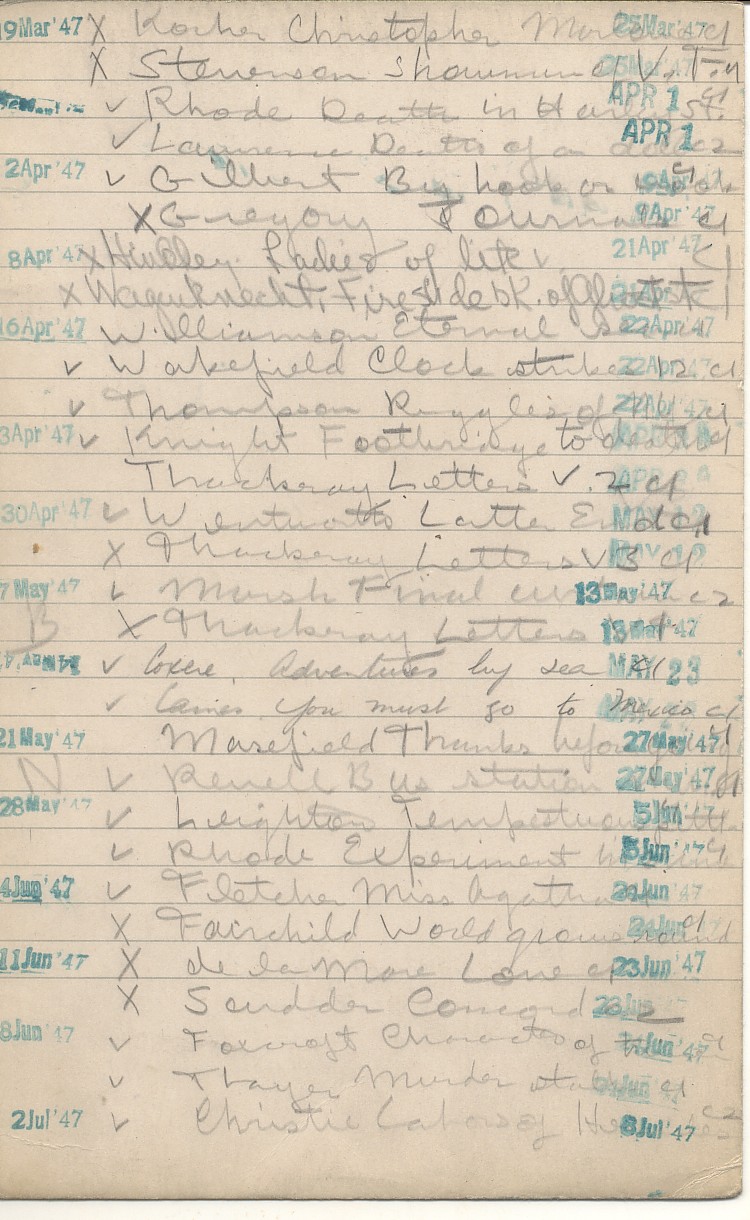 19Mar'47 X Kocher Christopher 25Mar'47 c1
X Stevenson Showmund V. T.
✓ Rhode Death in Harley St. APR 1 c1
✓ Lawrence Death of a APR 1 c2
2Apr'47 ✓ Gilbert By hook or 9Apr
X Gregory Journals 9Apr'47 c1
8Apr'47 X Hinkley Ladies of lit 21Apr'47 c1
X Wagenknecht, Fireside bk. of ghost c1
16Apr'47 Williamson Eternal 22Apr'47
✓ Wakefield Clock strikes 12 22Apr'47 c1
✓ Thompson Ruggles of 22Apr'47 c1
3Apr'47 ✓ Knight Footbridge to death c1
Thackeray Letters V. 2 c1
30Apr'47 ✓ Wentworth Latter End MAY 12 c1
X Thackeray Letters V 3 MAY 12 c1
7May'47 ✓ Marsh Final curtain 13May'47 c2
B X Thackeray Letters 13May'47
✓ Coxere, Adventures by sea MAY 23 c1
✓ Caines You must go to Mexico c1
21May'47 Masefield Thanks before 27May'47
N ✓ Revell Bus station 27May'47
28May'47 ✓ Leighton Tempestuous 5Jun'47
✓ Rhode Experiment 5Jun'47 c1
4Jun'47 ✓ Fletcher Miss Agatha 24Jun'47
X Fairchild World grows round 24Jun c1
11Jun'47 X de la Mare Love c1 23Jun'47
X Scudder Concord 23Jun
8Jun'47 ✓ Foxcroft Character of Jun'47 c1
✓ Thayer Murder Jun c1
2Jul'47 ✓ Christie Labors of 8Jul'47 c2